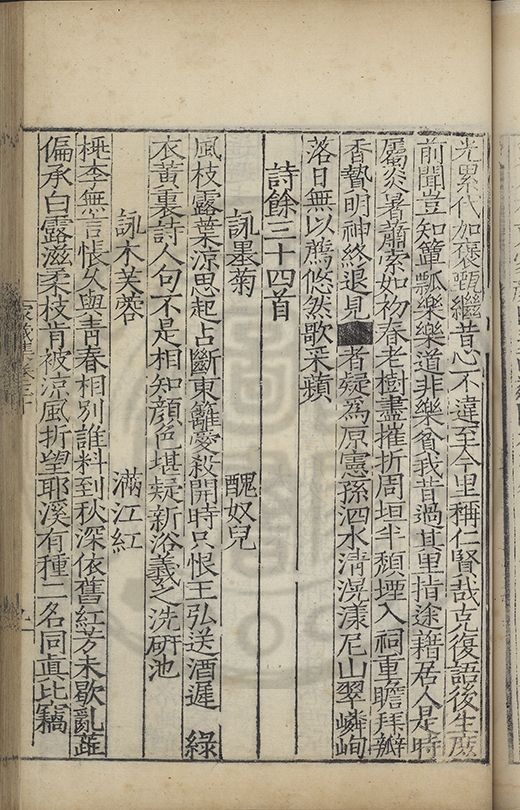 光累代加褒甄繼昔心不違至今里稱仁賢哉克復語後生蔑
前聞豈知簞瓢樂樂道非樂貧我昔過其里指途藉居人是時
屬炎暑蕭索如初春老樹盡摧折周垣半頹堙入祠重瞻拜瓣
香贄明神終退見者疑爲原憲孫泗水清滉漾尼山翠嶙峋
落日無以薦悠然歌采蘋
詩餘三十四首
詠墨菊 醜奴兒
風枝露葉涼思起占斷東籬愛殺開時只恨王弘送酒遲 綠
衣黃裏詩人句不是相知顏色堪疑新浴羲之洗硏池
詠木芙蓉 滿江紅
桃李無言悵久與靑春相別誰料到秋深依舊紅芳未歇亂蕋
偏承白露滋柔枝肯被涼風折望耶溪有種二名同眞比竊